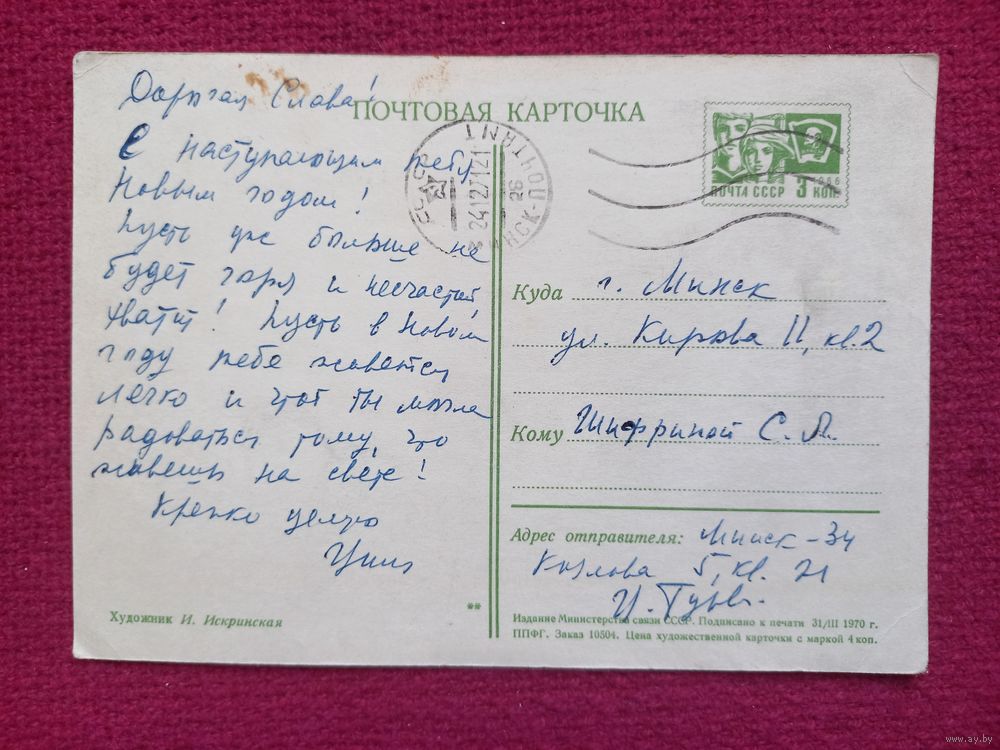 Дорогая Слава!
ПОЧТОВАЯ КАРТОЧКА
С наступающим тебя
Новым годом!
Пусть уже больше не
будет горя и несчастий,
хватит! Пусть в Новом
году тебе живется
легко и чтоб ты могла
радоваться тому, что
живешь на свете!
Крепко целую
Художник И. Искринская
**
СССР
24127121
26
МИНСК-ПОЧТАМТ
1966
ПОЧТА СССР 3 КОП.
Куда г. Минск
ул. Кирова 11, кв. 2
Кому Шифриной С. Л.
Адрес отправителя: Минск-34
Козлова 5, кв. 21
Издание Министерства связи СССР. Подписано к печати 31/III 1970 г.
ППФГ. Заказ 10504. Цена художественной карточки с маркой 4 коп.
www.ay.by